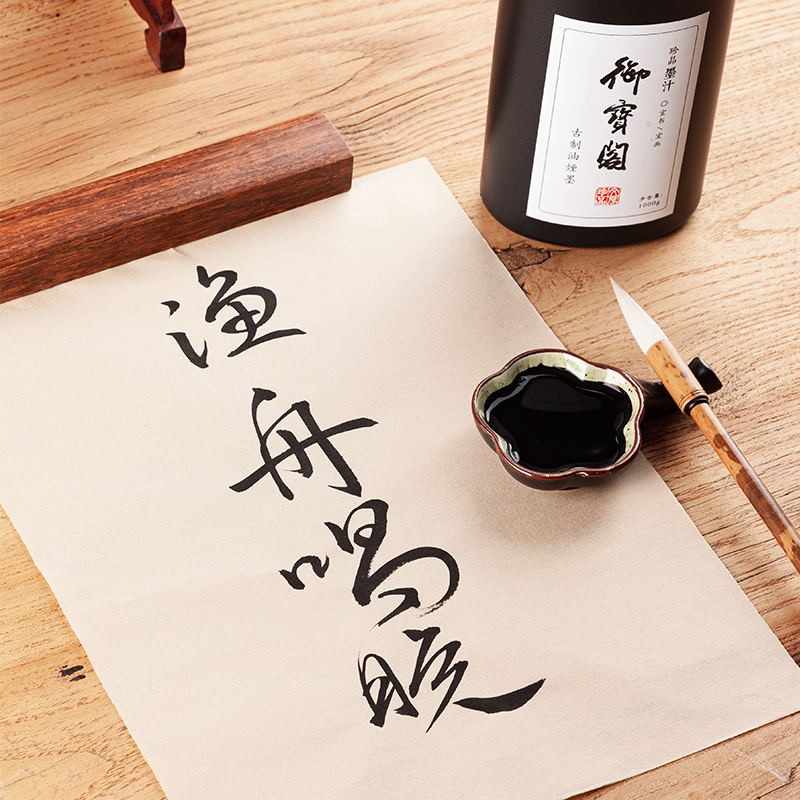 珍品墨汁 ◎ 宜书/宜画
御寶閣
古制油煙墨
净含量:
1000g
渔舟唱晚